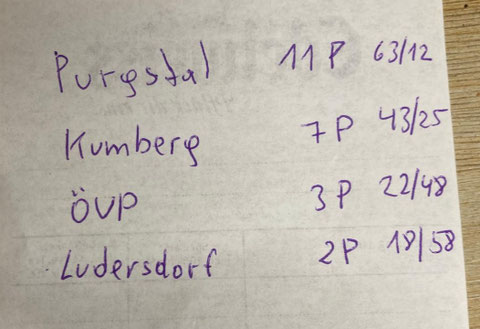 Purgstal 11 P 63/12
Kumberg 7 P 43/25
ÖVP 3 P 22/48
Ludersdorf 2 P 18/58